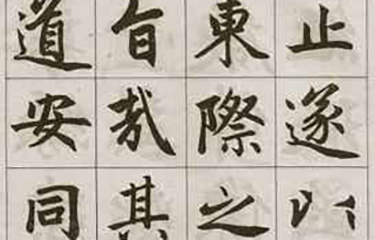 止遂
東際之
旨哉其
道安同